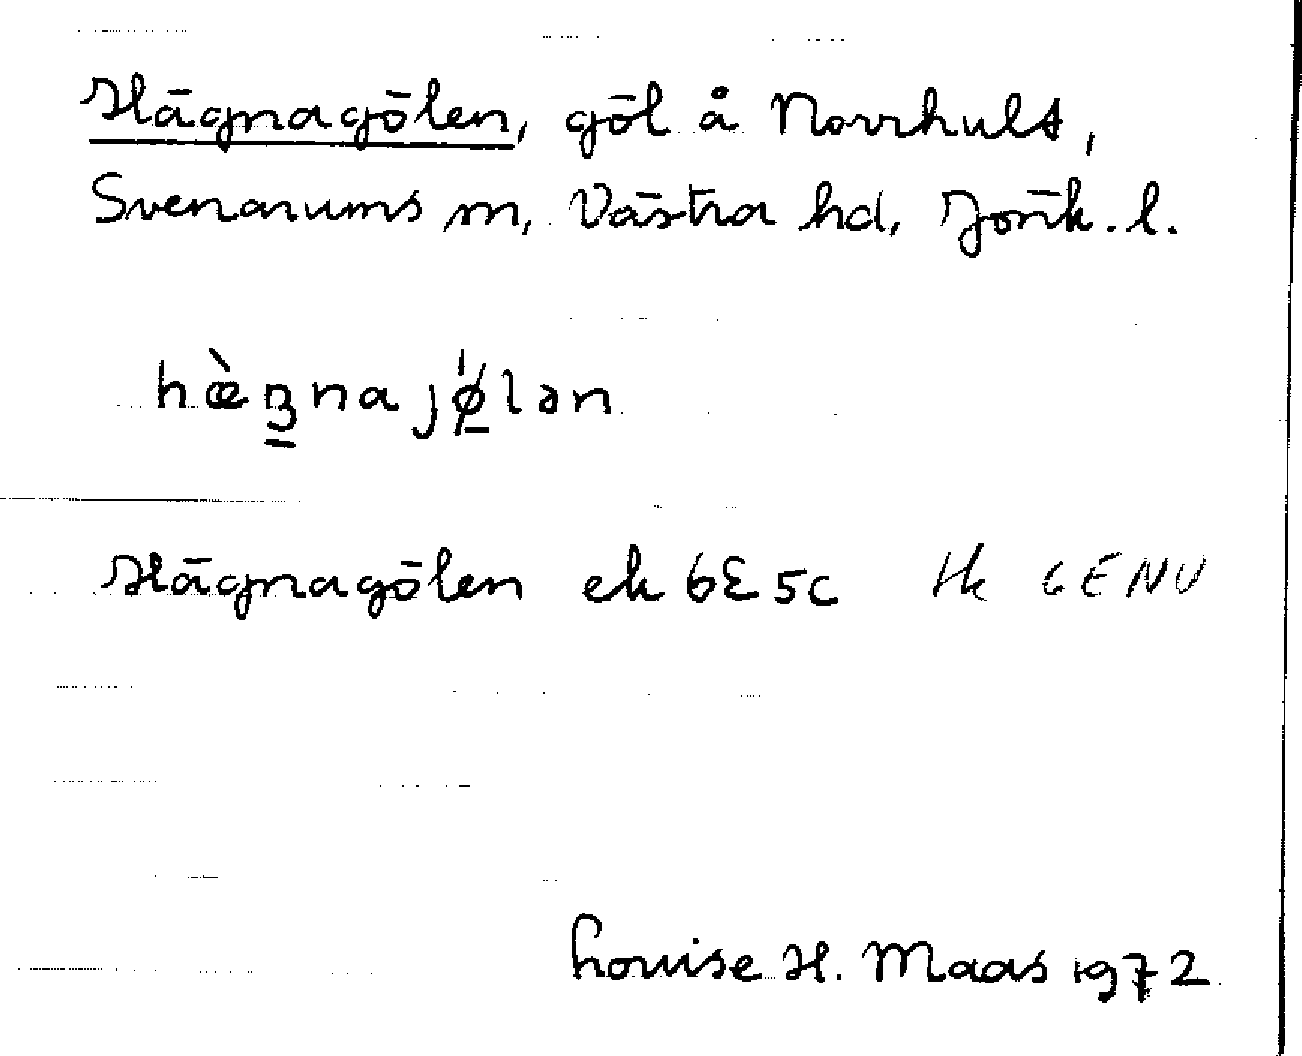 Hägnagölen, göl å Norrhult,
Svenarums sn, Västra hd, Jönk. l.
hæ̀gnajø̀lən
Hägnagölen ek 6E5c Hk 6ENV
Louise H. Maas 1972